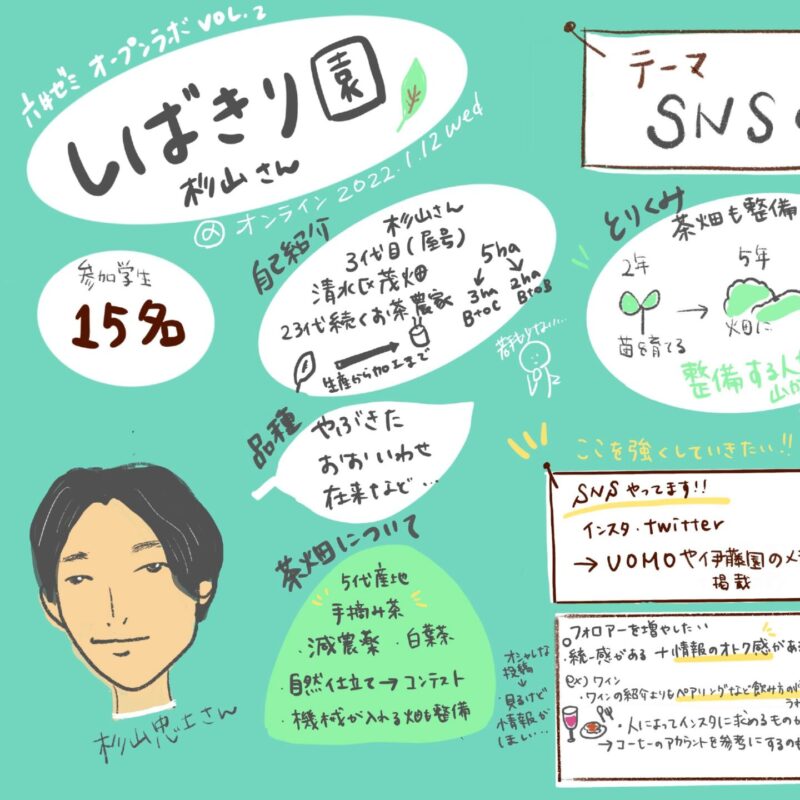 六井ゼミ オープンラボ VOL.2
しばきり園
杉山さん
@ オンライン 2022.1.12 wed
参加学生
15名
自己紹介
杉山さん
3代目(屋号)
清水区茂畑
23代続くお茶農家
5ha
3ha
BtoC
2ha
BtoB
生産から加工まで
若手少ない...
品種
やぶきた
おおいわせ
在来など...
茶畑について
5代産地
手摘み茶
・減農薬 ・白葉茶
・自然仕立て→コンテスト
・機械が入れる畑も整備
杉山忠士さん
テーマ
SNS
とりくみ
茶畑も整備
2年
5年
苗を育てる
畑に
整備する人
山が
ここを強くしていきたい!!
SNSやってます!!
インスタ・twitter
→ UOMOや伊藤園のメ
掲載
フォロアーを増やしたい
・統一感がある + 情報のオトク感があ
ex) ワイン
・ワインの紹介よりもペアリングなど飲み方の
・人によってインスタに求めるものが
→コーヒーのアカウントを参考にするのも
オシャレな
投稿
↓
見るけど
情報が
ほしい...